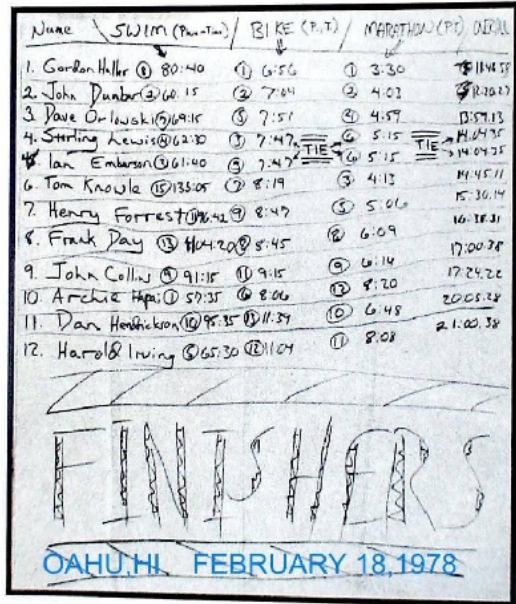 Name SWIM (Place-Time) BIKE (P,T) MARATHON (P,T) OVERALL
1. Gordon Haller ⑧ 80:40 ① 6:56 ① 3:30
2. John Dunbar ② 60:15 ② 7:04 ② 4:03
3. Dave Orlowski ⑥ 69:15 ⑤ 7:51 ④ 4:59 13:59.13
4. Sterling Lewis ④ 62:30 ③ 7:47 TIE ⑥ 5:15 TIE 14:04.35
Ian Emberson ③ 61:40 ③ 7:47 ⑥ 5:15 14:04.35
6. Tom Knowle ⑮ 135:05 ⑦ 8:19 ③ 4:13 14:45.11
7. Henry Forrest ⑪ 96:42 ⑨ 8:47 ⑤ 5:06 15:30.14
8. Frank Day ⑬ 8:45 ⑧ 6:09 16:38.31
9. John Collins ⑨ 91:15 ⑪ 9:15 ⑨ 6:14 17:00.38
10. Archie Hapai ① 57:35 ⑥ 8:06 ⑫ 8:20 17:24.22
11. Dan Hendrickson ⑩ 95:35 ⑬ 11:39 ⑩ 6:48 20:03.28
12. Harold Irving ⑤ 65:30 ⑫ 11:04 ⑪ 8:08 21:00.38
FINISHERS
OAHU,HI FEBRUARY 18,1978